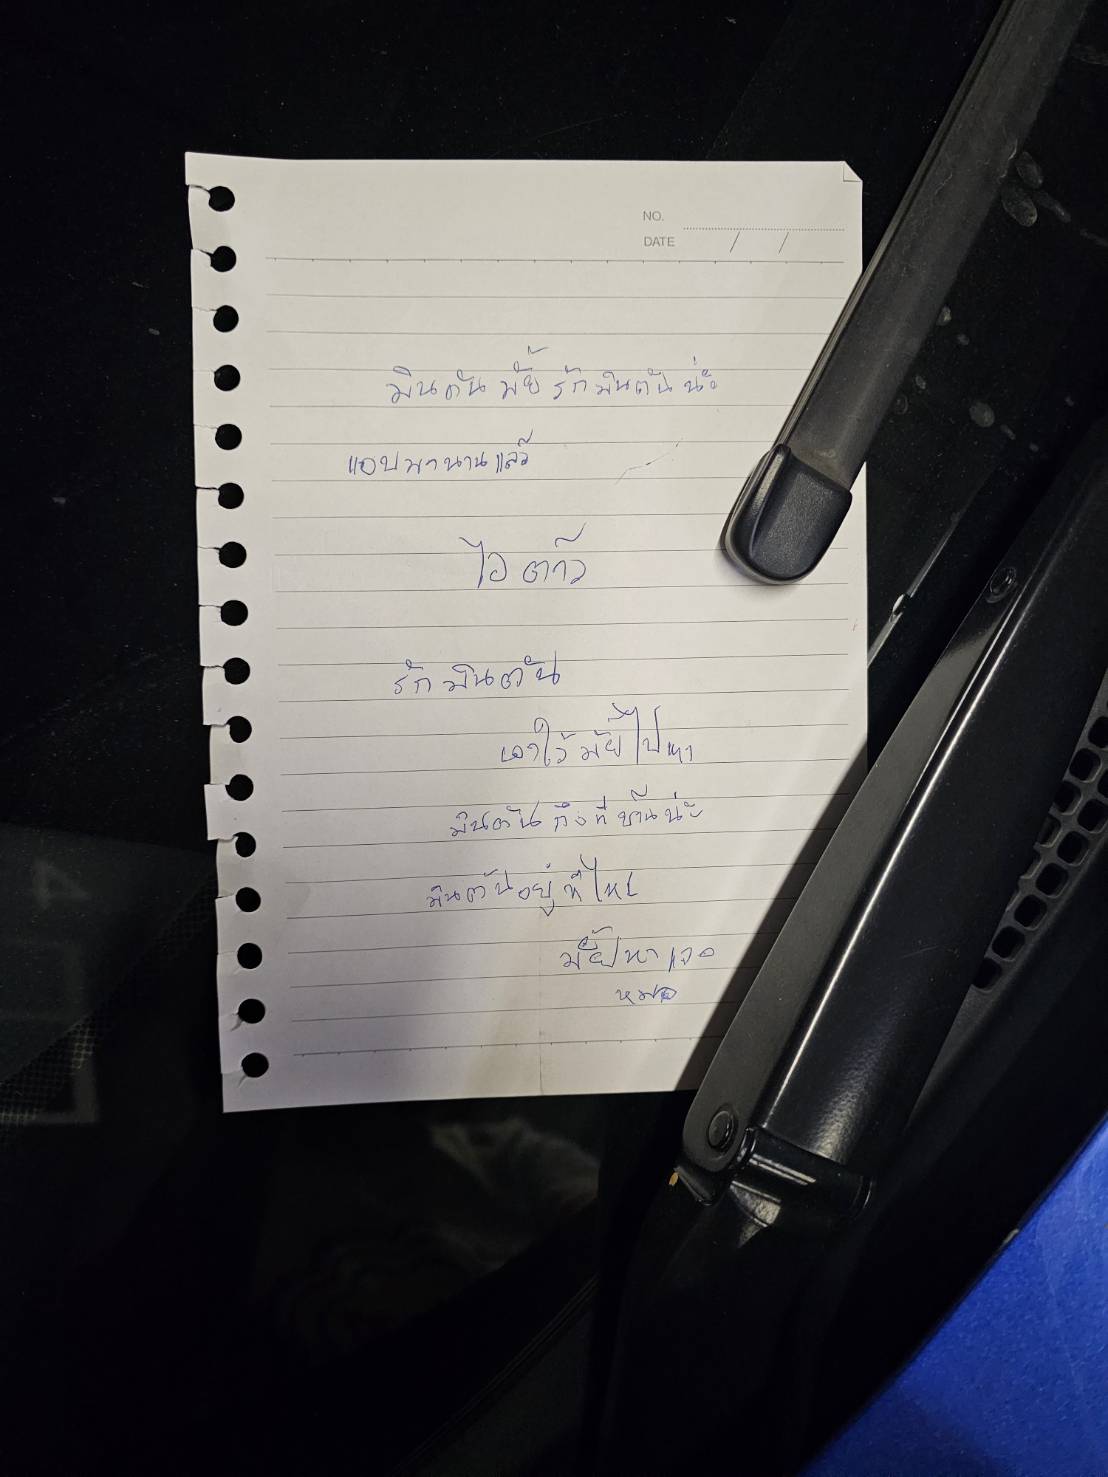 NO.
DATE / /
มินตัน มั้ย รัก มินตัน น่ะ
แอบมานานแล้ว
ไอ ต้าว
รัก มินตัน
เอาไว้ มั้ยไปหา
มินตัน ถึงที่ บ้านน่ะ
มินตันอยู่ ที่ไหน
มั้ย หา เจอ
หมด